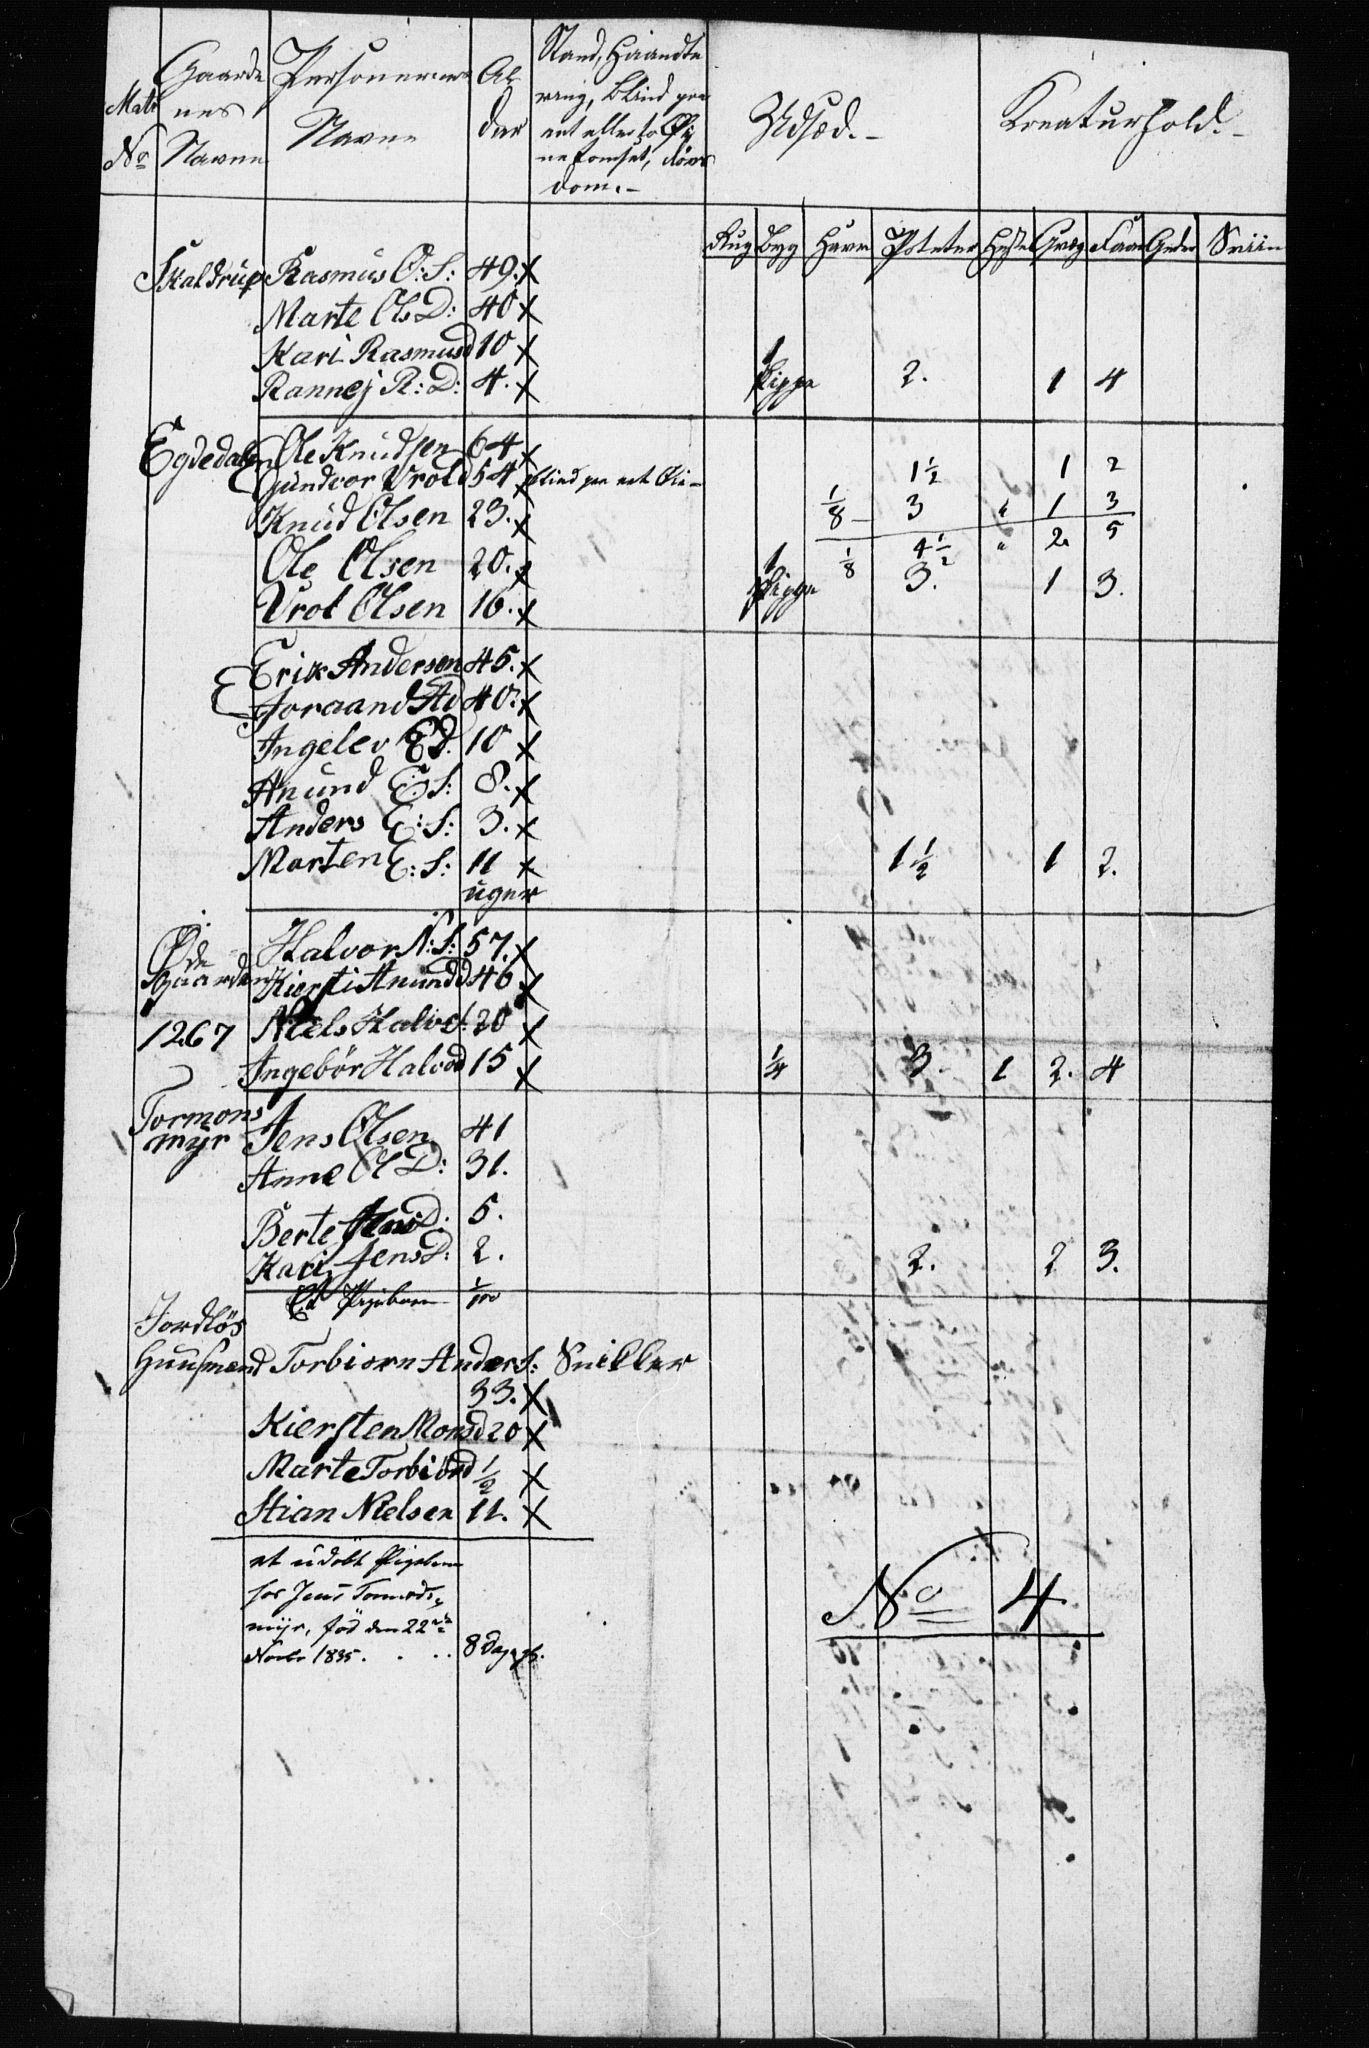 Matr No Gaardenes Navne Personernes Navne Alder Stand, Haandtering, blind paa eet eller to Øine Udsæd. Kreaturhold.
Rug Byg Havre Poteter Heste Faar Geder Sviin
Skaldrup Rasmus O: S: 49. x
Marte Ols D: 40 x
Kari Rasmusd 10 x
Rannej R: D: 4. x 1 2. 1 4
Egdedalen Ole Knudsen 64 x
Gundvor Vrold 54 x blind paa eet Øie 1½ 1 2
Knud Olsen 23. x 1/8 3 " 1 3
1/8 4½ " 2 5
Ole Olsen 20. x 1 3. 1 3.
Vrol Olsen 16. x
Erik Andersen 45. x
Joraand Ad 40. x
Ingelev Ed. 10 x
Anund E: S: 8. x
Anders E: S: 3. x
Morten E: S: 11 x 1½ 1 2.
uger
Øde Halvor N: S: 57. x
gaarden Kiersti Anundd 46 x
1267 Niels Halvs. 20 x
Ingebör Halvod 15 x ¼ 3. 1 2. 4
Tormons
myr Jens Olsen 41
Anne Ol D: 31.
Berte Jens D: 5.
Kari Jens D: 2. 2. 2 3.
Et Pigebarn 1/100
Jordløs
Huusmend Torbiorn Anders S: Snikker
33. x
Kiersten Monsd 20 x
Marte Torbiörd ½ x
Stian Nielsen 11. x
et udöbt Pigebarn
hos Jens Tormods
myr, föd den 22de
Novbr 1835. . . . 8 Dage gl.
No 4